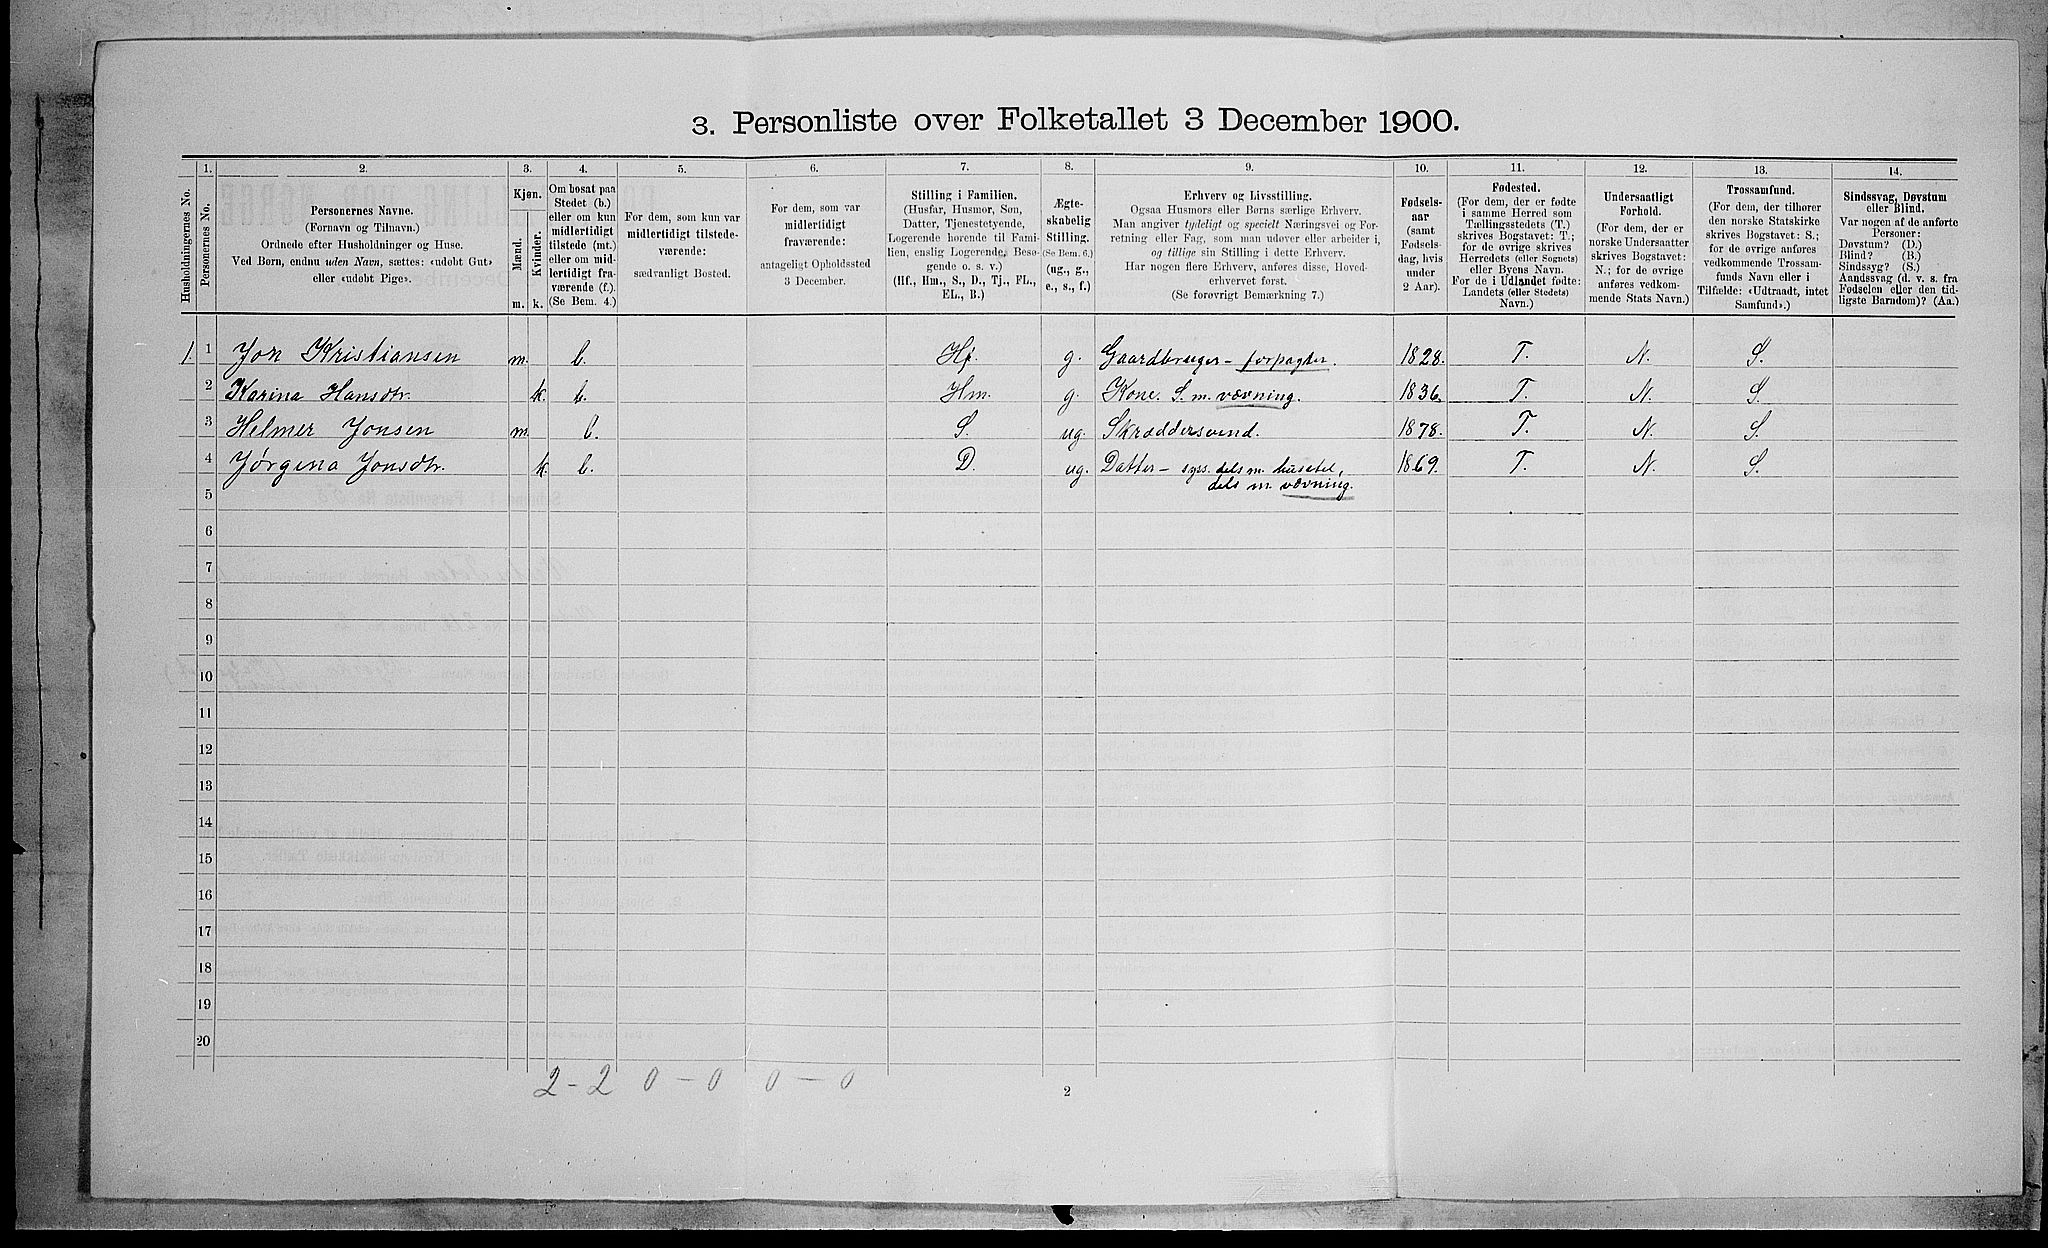 3. Personliste over Folketallet 3 December 1900.
1. 2. 3. 4. 5. 6. 7. 8. 9. 10. 11. 12. 13. 14.
Husholdningernes No.
Personernes No.
Personernes Navne.
(Fornavn og Tilnavn.)
Ordnede efter Husholdninger og Huse.
Ved Børn, endnu uden Navn, sættes: «udøbt Gut»
eller «udøbt Pige».
Kjøn.
Mænd.
Kvinder.
m. k.
Om bosat paa
Stedet (b.)
eller om kun
midlertidigt
tilstede (mt.)
eller om mid-
lertidigt fra-
værende (f.)
(Se Bem. 4.)
For dem, som kun var
midlertidigt tilstede-
værende:
sædvanligt Bosted.
For dem, som var
midlertidigt
fraværende:
antageligt Opholdssted
3 December.
Stilling i Familien.
(Husfar, Husmor, Søn,
Datter, Tjenestetyende,
Logerende hørende til Fami-
lien, enslig Logerende, Besø-
gende o. s. v.)
(Hf., Hm., S., D., Tj., FL.,
EL., B.)
Ægte-
skabelig
Stilling.
(Se Bem. 6.)
(ug., g.,
e., s., f.)
Erhverv og Livsstilling.
Ogsaa Husmors eller Børns særlige Erhverv.
Man angiver tydeligt og specielt Næringsvei og For-
retning eller Fag, som man udøver eller arbeider i,
og tillige sin Stilling i dette Erhverv.
Har nogen flere Erhverv, anføres disse, Hoved-
erhvervet først.
(Se forøvrigt Bemærkning 7.)
Fødsels-
aar
(samt
Fødsels-
dag, hvis
under
2 Aar).
Fødested.
(For dem, der er fødte
i samme Herred som
Tællingsstedets (T.)
skrives Bogstavet: T.;
for de øvrige skrives
Herredets (eller Sognets)
eller Byens Navn.
For de i Udlandet fødte:
Landets (eller Stedets)
Navn.)
Undersaatligt
Forhold.
(For dem, der er
norske Undersaatter
skrives Bogstavet:
N.; for de øvrige
anføres vedkom-
mende Stats Navn.)
Trossamfund.
(For dem, der tilhører
den norske Statskirke
skrives Bogstavet: S.;
for de øvrige anføres
vedkommende Trossam-
funds Navn eller i
Tilfælde: «Udtraadt, intet
Samfund».)
Sindssvag, Døvstum
eller Blind.
Var nogen af de anførte
Personer:
Døvstum? (D.)
Blind? (B.)
Sindssyg? (S.)
Aandssvag (d. v. s. fra
Fødselen eller den tid-
ligste Barndom)? (Aa.)
1. 1 Jon Kristiansen m. b. Hf. g. Gaardbruger – forpagter. 1828. T. N. S.
2 Karina Hansdtr. k. b. Hm. g. Kone. S. m. vævning. 1836. T. N. S.
3 Helmer Jonsen m. b. S. ug. Skræddersvend. 1878. T. N. S.
4 Jørgina Jonsdtr. k. b. D. ug. Datter – syss. dels m. husstel, 1869. T. N. S.
5 dels m. vævning.
6
7
8
9
10
11
12
13
14
15
16
17
18
19
20
2 – 2 0 – 0 0 – 0
2